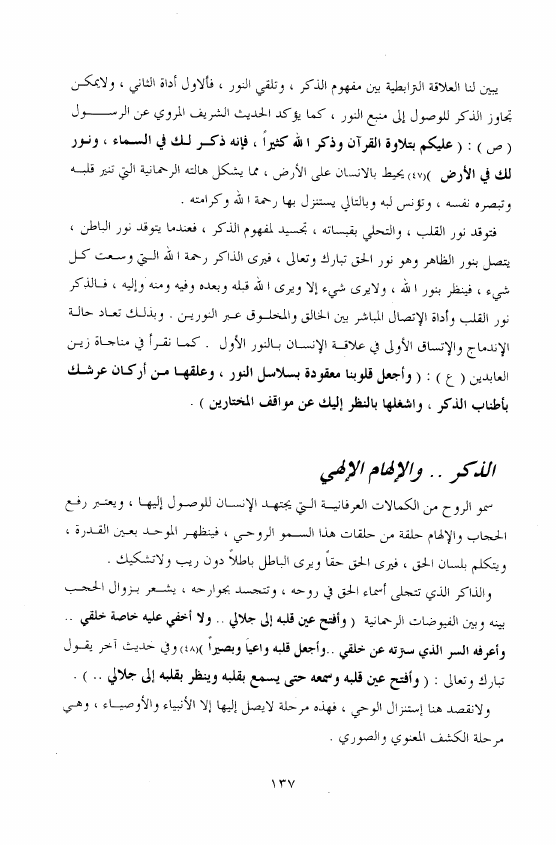 يبين لنا العلاقة الترابطية بين مفهوم الذكر ، وتلقي النور ، فألاول أداة الثاني ، ولايمكن
تجاوز الذكر للوصول إلى منبع النور ، كما يؤكد الحديث الشريف المروي عن الرسول
( ص ) : ( عليكم بتلاوة القرآن وذكر الله كثيراً ، فإنه ذكر لك في السماء ، ونور
لك في الأرض )(٤٧) يحيط بالانسان على الأرض ، مما يشكل هالته الرحمانية التي تنير قلبه
وتبصره نفسه ، وتؤنس لبه وبالتالي يستنزل بها رحمة الله وكرامته .
فتوقد نور القلب ، والتحلي بقبساته ، تجسيد لمفهوم الذكر ، فعندما يتوقد نور الباطن ،
يتصل بنور الظاهر وهو نور الحق تبارك وتعالى ، فيرى الذاكر رحمة الله التي وسعت كل
شيء ، فينظر بنور الله ، ولايرى شيء إلا ويرى الله قبله وبعده وفيه ومنه وإليه ، فالذكر
نور القلب وأداة الإتصال المباشر بين الخالق والمخلوق عبر النورين . وبذلك تعاد حالة
الإندماج والإتساق الأولى في علاقة الإنسان بالنور الأول . كما نقرأ في مناجاة زين
العابدين ( ع ) : ( وأجعل قلوبنا معقودة بسلاسل النور ، وعلقها من أركان عرشك
بأطناب الذكر ، واشغلها بالنظر إليك عن مواقف المختارين ) .
الذكر .. والإلهام الإلهي
سمو الروح من الكمالات العرفانية التي يجتهد الإنسان للوصول إليها ، ويعتبر رفع
الحجاب والإلهام حلقة من حلقات هذا السمو الروحي ، فينظهر الموحد بعين القدرة ،
ويتكلم بلسان الحق ، فيرى الحق حقاً ويرى الباطل باطلاً دون ريب ولاتشكيك .
والذاكر الذي تتجلى أسماء الحق في روحه ، وتتجسد بجوارحه ، يشعر بزوال الحجب
بينه وبين الفيوضات الرحمانية ( وأفتح عين قلبه إلى جلالي .. ولا أخفي عليه خاصة خلقي ..
وأعرفه السر الذي سترته عن خلقي ..وأجعل قلبه واعياً وبصيراً )(٤٨) وفي حديث آخر يقول
تبارك وتعالى : ( وأفتح عين قلبه وسمعه حتى يسمع بقلبه وينظر بقلبه إلى جلالي .. ) .
ولانقصد هنا إستنزال الوحي ، فهذه مرحلة لايصل إليها إلا الأنبياء والأوصياء ، وهي
مرحلة الكشف المعنوي والصوري .
١٣٧